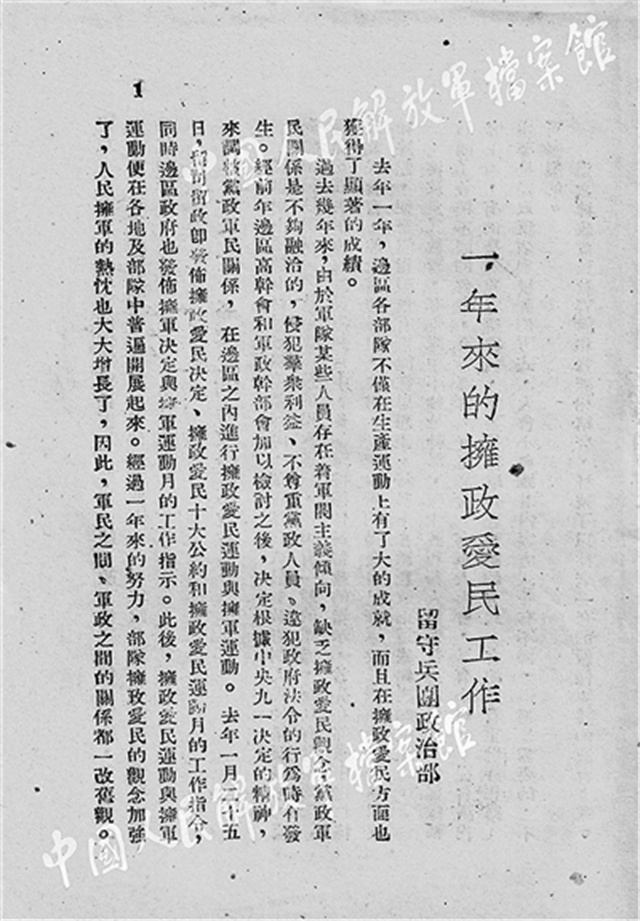 一年來的擁政愛民工作
留守兵團政治部
去年一年，邊區各部隊不僅在生產運動上有了大的成就，而且在擁政愛民方面也
獲得了顯著的成績。
過去幾年來，由於軍隊某些人員存在着軍閥主義傾向，缺乏擁政愛民觀念，黨政軍
民關係是不夠融洽的，侵犯羣衆利益、不尊重黨政人員、違犯政府法令的行為時有發
生。經前年邊區高幹會和軍政幹部會加以檢討之後，决定根據中央九一决定的精神，
來調整黨政軍民關係，在邊區之內進行擁政愛民運動與擁軍運動。去年一月二十五
日，留司留政即發佈擁政愛民决定、擁政愛民十大公約和擁政愛民運動月的工作指令，
同時邊區政府也發佈擁軍决定與擁軍運動月的工作指示。此後，擁政愛民運動與擁軍
運動便在各地及部隊中普遍開展起來。經過一年來的努力，部隊擁政愛民的觀念加強
了，人民擁軍的熱忱也大大增長了，因此，軍民之間、軍政之間的關係都一改舊觀。
1
中國人民解放軍檔案館
中國人民解放軍檔案館